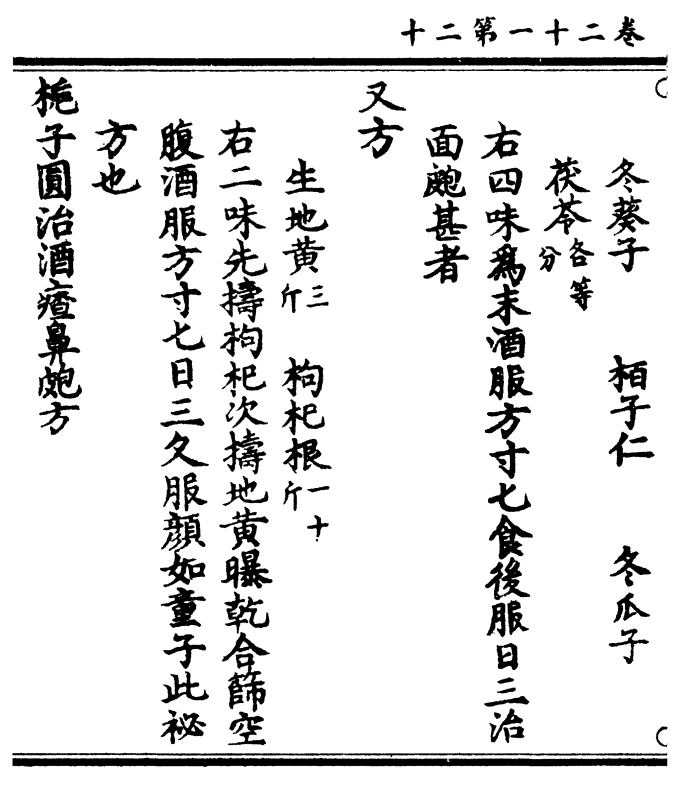 卷二十一第二十
冬葵子 栢子仁 冬瓜子
茯苓各等分
右四味爲末酒服方寸七食後服日三治
面皰甚者
又方
生地黄三斤 枸杞根一十斤
右二味先擣枸杞次擣地黄曝乾合篩空
腹酒服方寸七日三久服顔如童子此祕
方也
梔子圓治酒㾴鼻皰方